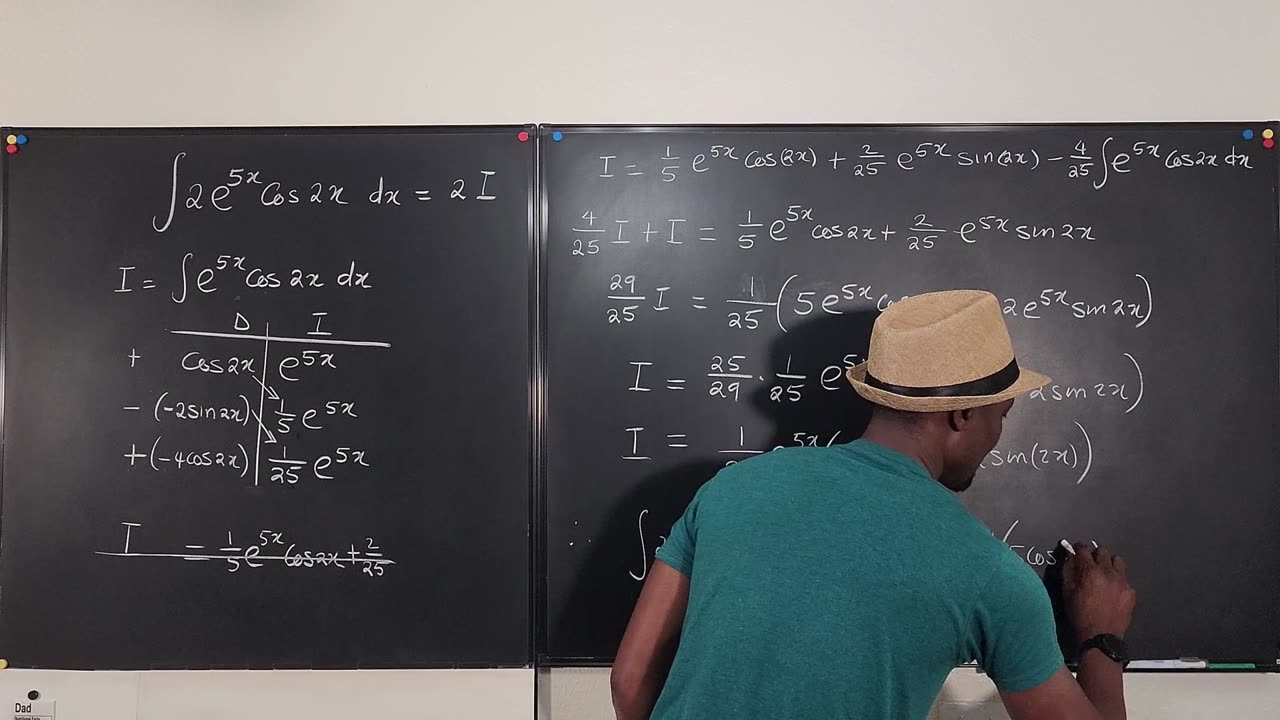 ∫ 2e^{5x} cos 2x dx = 2 I
I = ∫ e^{5x} cos 2x dx
D I
+ cos2x e^{5x}
- (-2sin2x) 1/5 e^{5x}
+ (-4cos2x) 1/25 e^{5x}
I = 1/5 e^{5x} cos2x + 2/25
I = 1/5 e^{5x} cos(2x) + 2/25 e^{5x} sin(2x) - 4/25 ∫ e^{5x} cos2x dx
4/25 I + I = 1/5 e^{5x} cos2x + 2/25 e^{5x} sin2x
29/25 I = 1/25 (5e^{5x} 2e^{5x} sin2x)
I = 25/29 · 1/25 e 2sin2x)
I = 1 sin(2x))
∴ ∫ (5cos
Dad